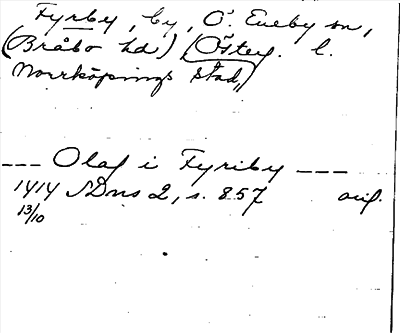 Fyrby, by, Ö. Eneby sn,
(Bråbo hd) Österg. l.
Norrköpings stad,
--- Olaf i Fyriby ---
1414 SDns 2, s. 857 orig.
13/10